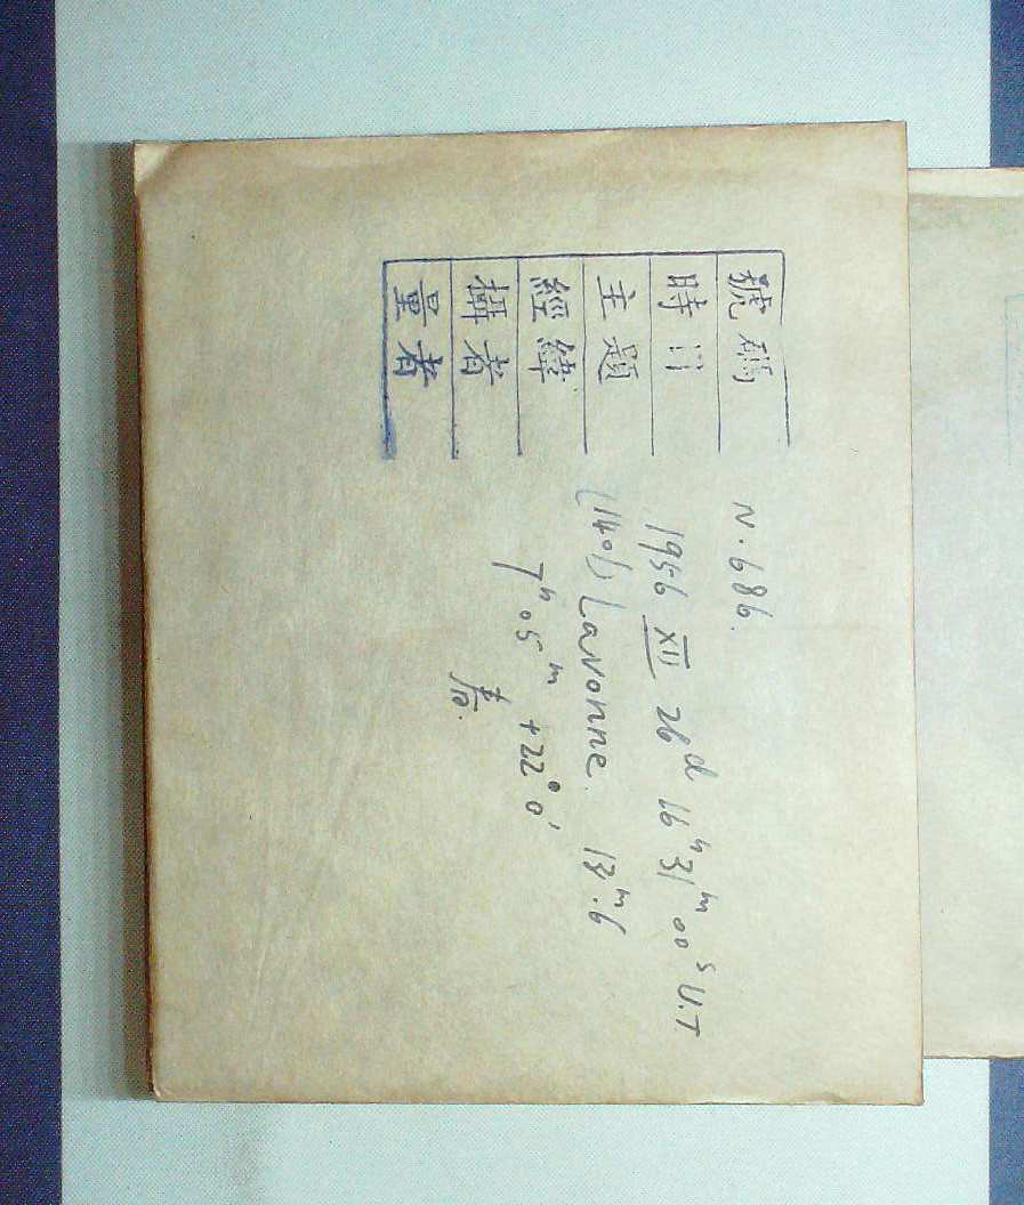 號碼 N. 686.
時日 1956 XII 26d 16h 31m 00s U.T
主題 (1401) Lavonne. 13m.6
經緯 7h 05m +22° 0'
攝者
量者